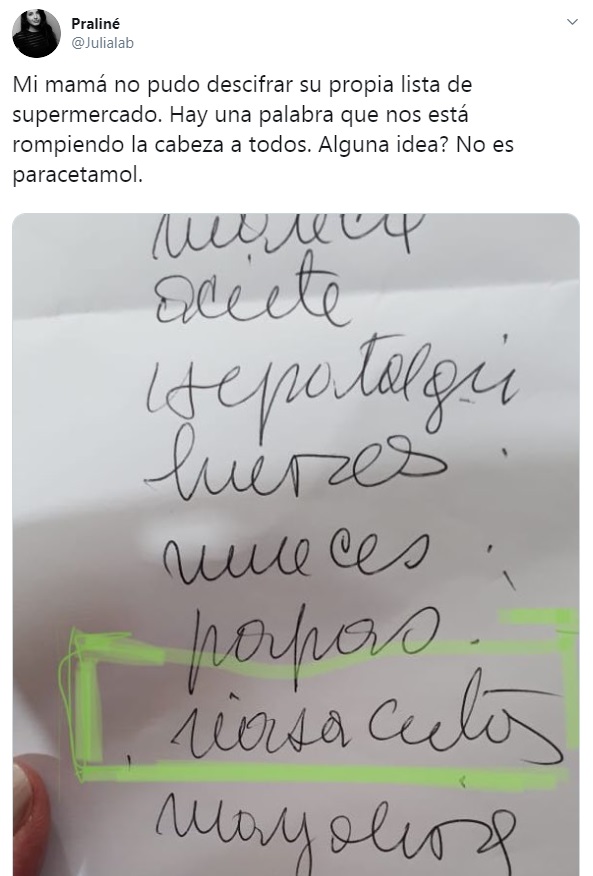 Praliné
@Julialab
Mi mamá no pudo descifrar su propia lista de
supermercado. Hay una palabra que nos está
rompiendo la cabeza a todos. Alguna idea? No es
paracetamol.
aceite
Hepatalgi
nueces
papas